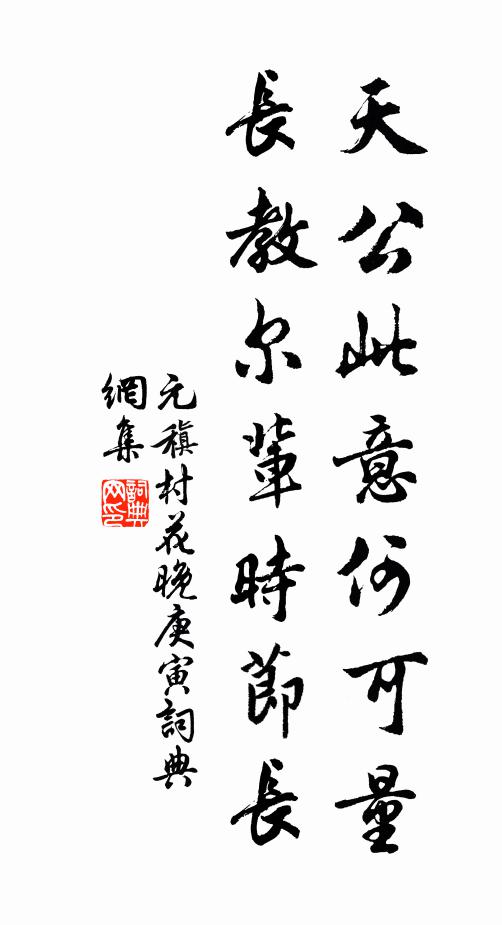 天公此意何可量
長教尔輩時節長
元稹村花晚庚寅詞典
網集
詞典
网印